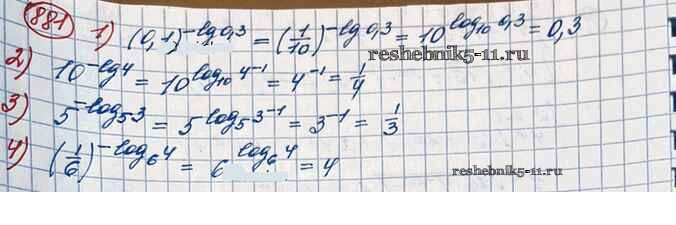 881 1) (0,1)^{-lg 0,3} = (1/10)^{-lg 0,3} = 10^{log_{10} 0,3} = 0,3
2) 10^{-lg 4} = 10^{log_{10} 4^{-1}} = 4^{-1} = 1/4
reshebnik5-11.ru
3) 5^{-log_5 3} = 5^{log_5 3^{-1}} = 3^{-1} = 1/3
4) (1/6)^{-log_6 4} = 6^{log_6 4} = 4
reshebnik5-11.ru